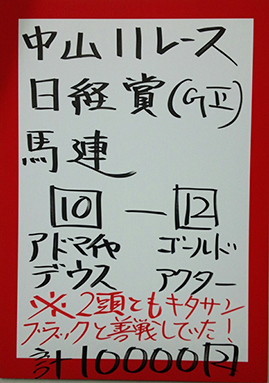 中山11レース
日経賞(GⅡ)
馬連
10 — 12
アドマイヤ ゴールド
デウス アクター
※2頭ともキタサン
ブラックと善戦していた!
計10000円